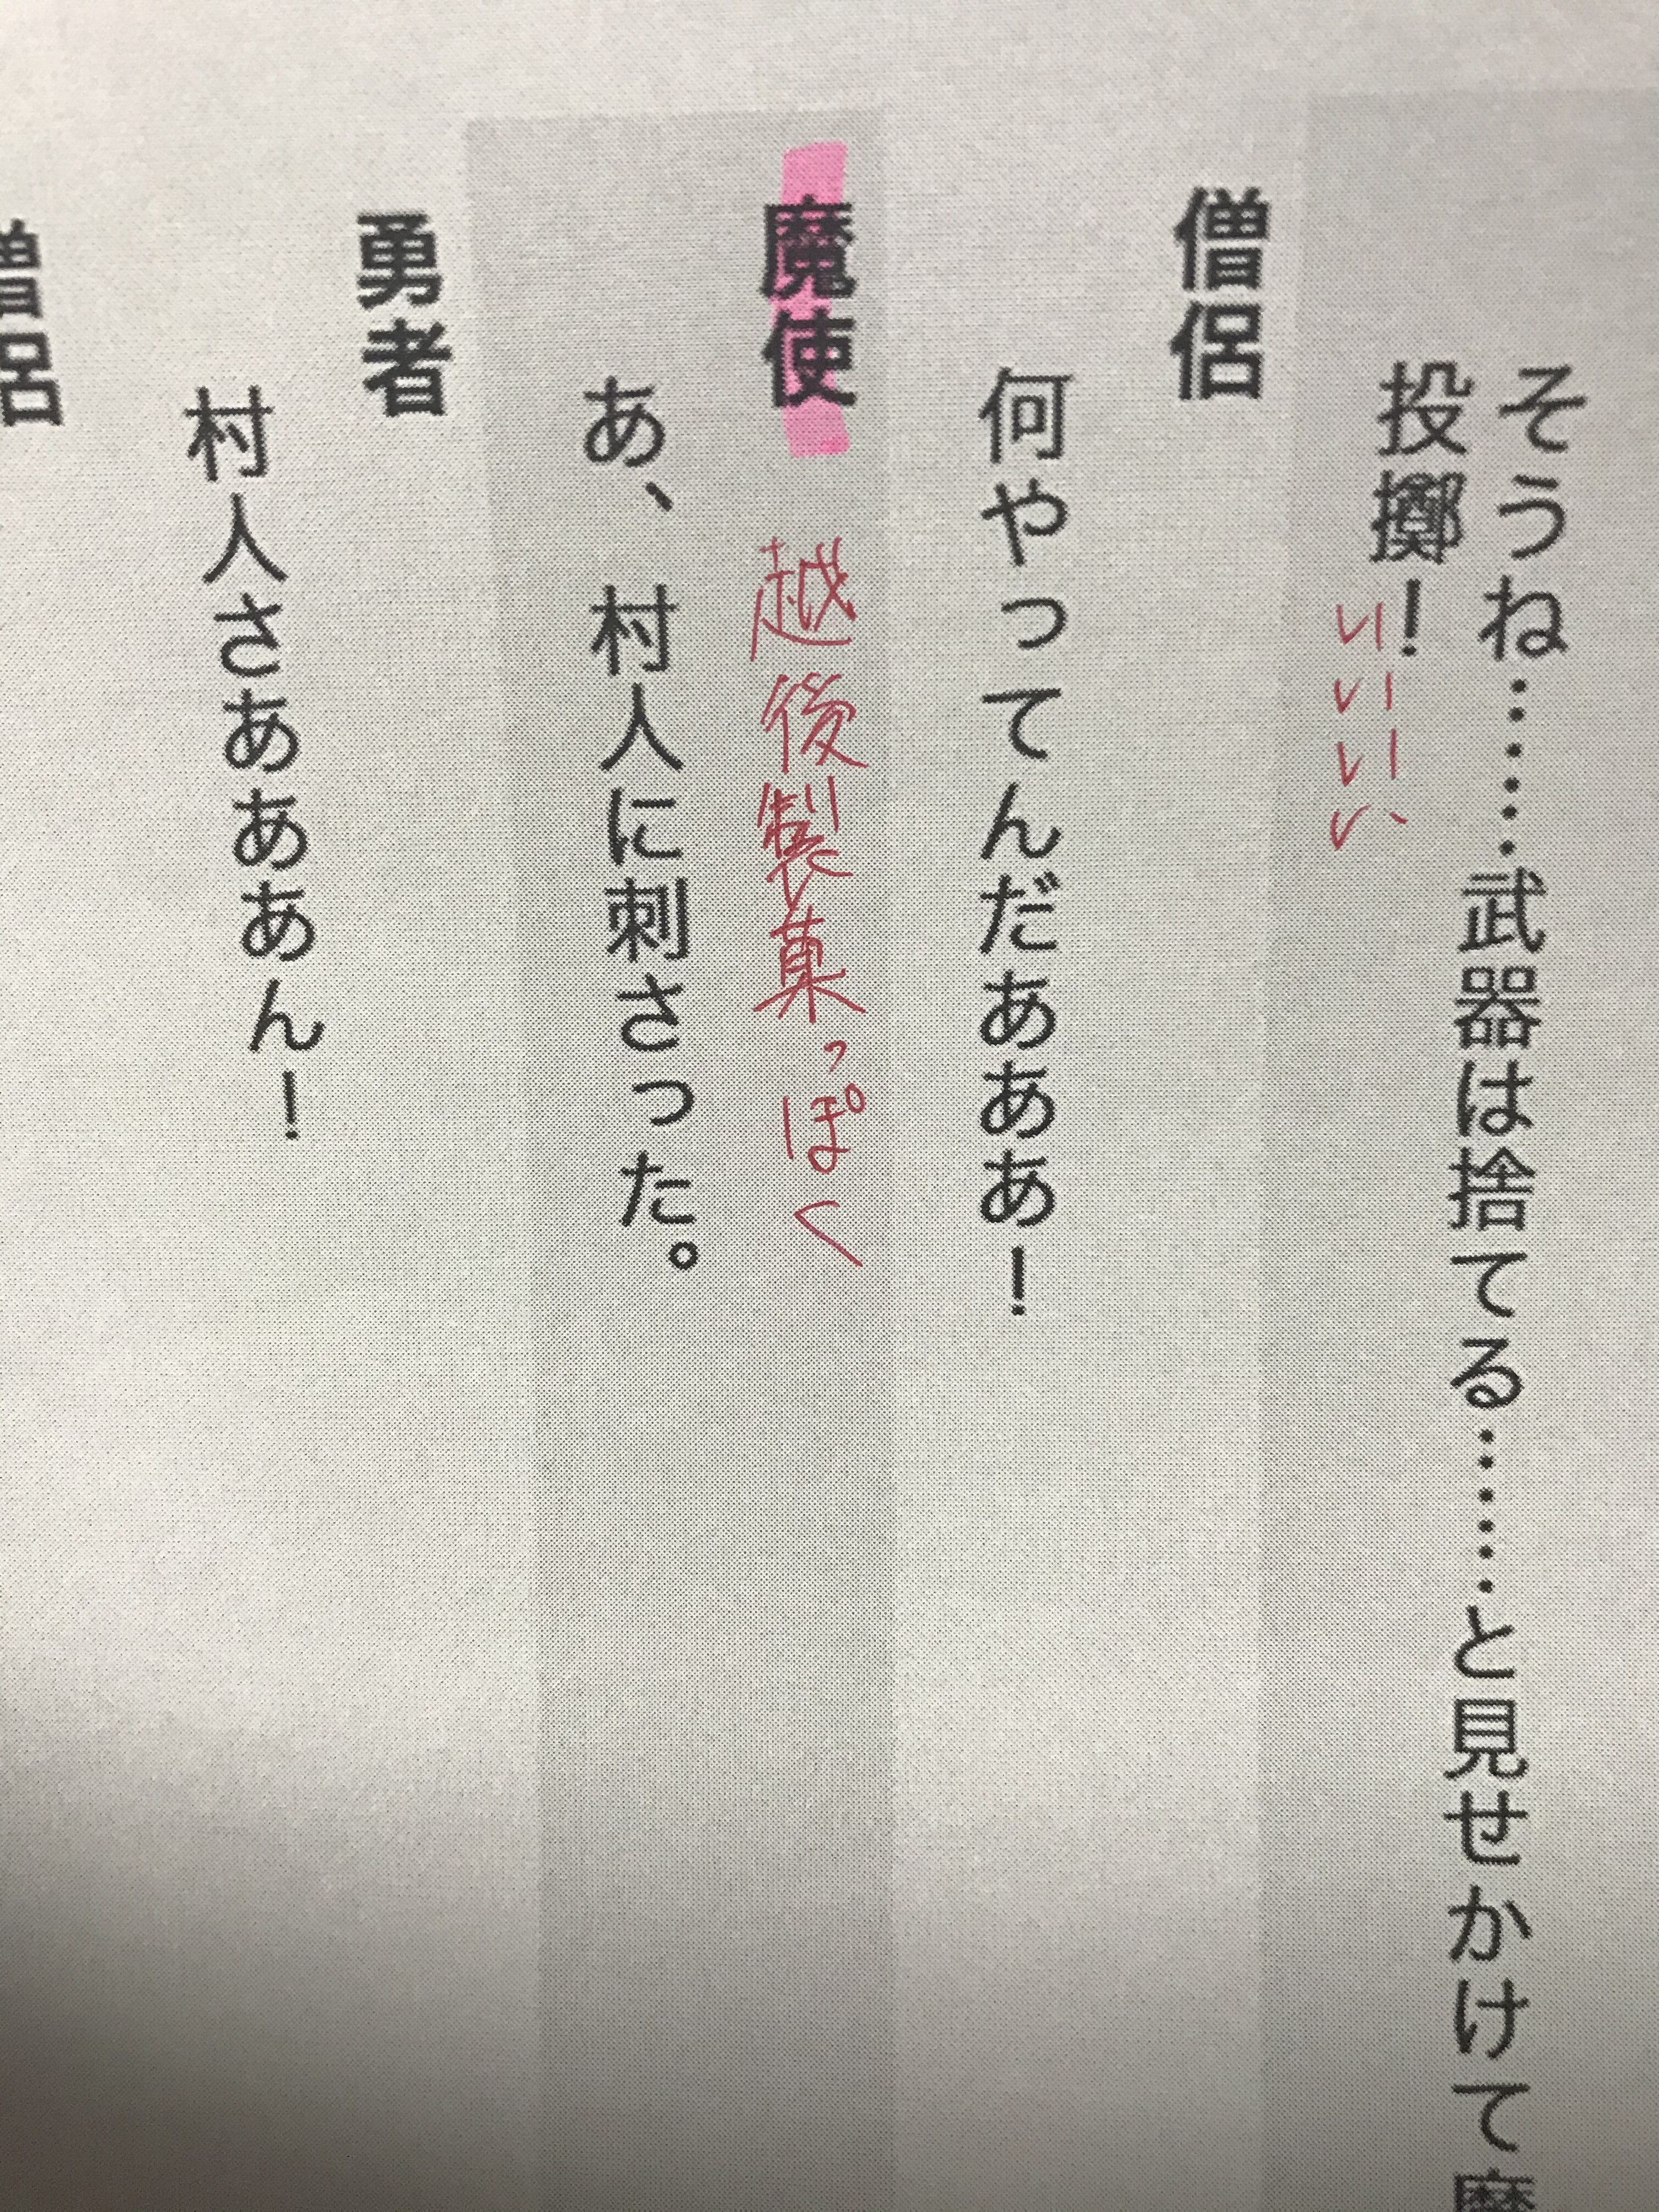 そうね……武器は捨てる……と見せかけて魔
投擲！
いいいい
僧侶
何やってんだあああ！
魔使
越後製菓っぽく
あ、村人に刺さった。
勇者
村人さあああん！
僧侶